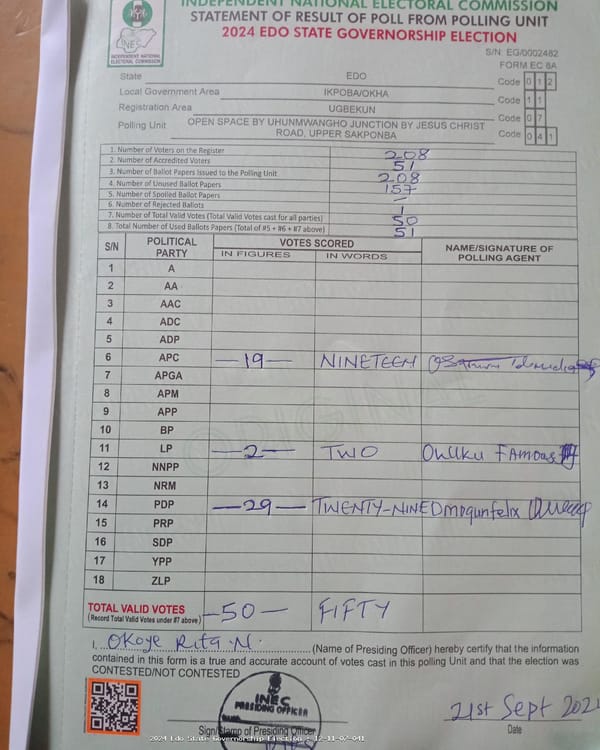 INDEPENDENT NATIONAL ELECTORAL COMMISSION
STATEMENT OF RESULT OF POLL FROM POLLING UNIT
2024 EDO STATE GOVERNORSHIP ELECTION
INEC
INDEPENDENT NATIONAL ELECTORAL COMMISSION
S/N: EG/0002482
FORM EC 8A
State EDO Code 0 1 2
Local Government Area IKPOBA/OKHA Code 1 1
Registration Area UGBEKUN Code 0 7
Polling Unit OPEN SPACE BY UHUNMWANGHO JUNCTION BY JESUS CHRIST ROAD, UPPER SAKPONBA Code 0 4 1
1. Number of Voters on the Register 208
2. Number of Accredited Voters 51
3. Number of Ballot Papers Issued to the Polling Unit 208
4. Number of Unused Ballot Papers 157
5. Number of Spoiled Ballot Papers –
6. Number of Rejected Ballots 1
7. Number of Total Valid Votes (Total Valid Votes cast for all parties) 50
8. Total Number of Used Ballots Papers (Total of #5 + #6 + #7 above) 51
S/N POLITICAL PARTY VOTES SCORED NAME/SIGNATURE OF POLLING AGENT
IN FIGURES IN WORDS
1 A
2 AA
3 AAC
4 ADC
5 ADP
6 APC —19— NINETEEN
7 APGA
8 APM
9 APP
10 BP
11 LP —2— TWO Onuku Famous
12 NNPP
13 NRM
14 PDP —29— TWENTY-NINE
15 PRP
16 SDP
17 YPP
18 ZLP
TOTAL VALID VOTES —50— FIFTY
(Record Total Valid Votes under #7 above)
I, Okoye Rita N. (Name of Presiding Officer) hereby certify that the information
contained in this form is a true and accurate account of votes cast in this polling Unit and that the election was
CONTESTED/NOT CONTESTED
INEC
PRESIDING OFFICER
21st Sept 202
Sign/Stamp of Presiding Officer Date
2024 Edo State Governorship Election - 12-11-07-041